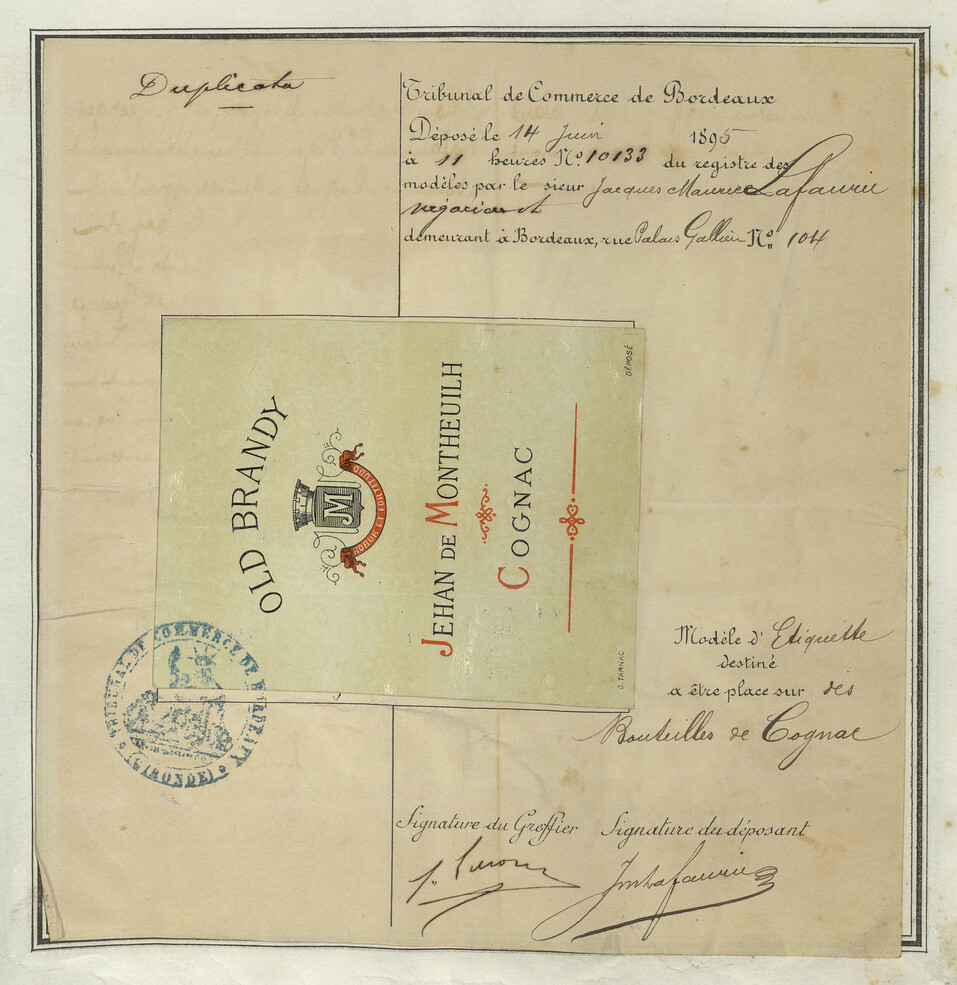 Duplicata
Tribunal de Commerce de Bordeaux
Déposé le 14 Juin 1895
à 11 heures No. 10133 du registre des
modèles par le sieur Jacques Maurice Lafaurie
négociant
demeurant à Bordeaux, rue Palais Gallien No. 104
OLD BRANDY
JM
ROBUR ET FORTITUDO
JEHAN DE MONTHEUILH
COGNAC
DÉPOSÉ
G. TARNAC
TRIBUNAL DE COMMERCE DE BORDEAUX
(GIRONDE)
Modèle d'Etiquette
destiné
a être place sur des
Bouteilles de Cognac
Signature du Greffier Signature du déposant
JmLafaurie